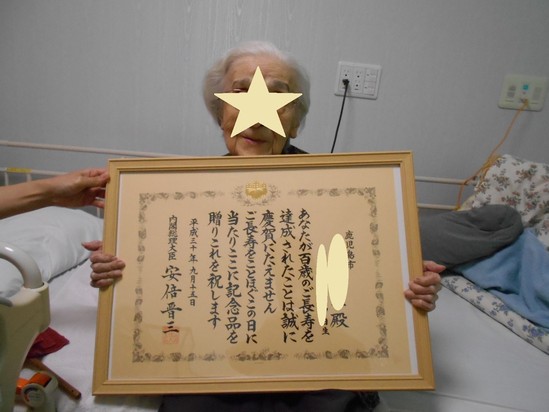 鹿児島市
殿
生
あなたが百歳のご長寿を
達成されたことは誠に
慶賀にたえません
ご長寿をことほぐこの日に
当たりここに記念品を
贈りこれを祝します
平成三十年九月十五日
内閣総理大臣 安倍晋三